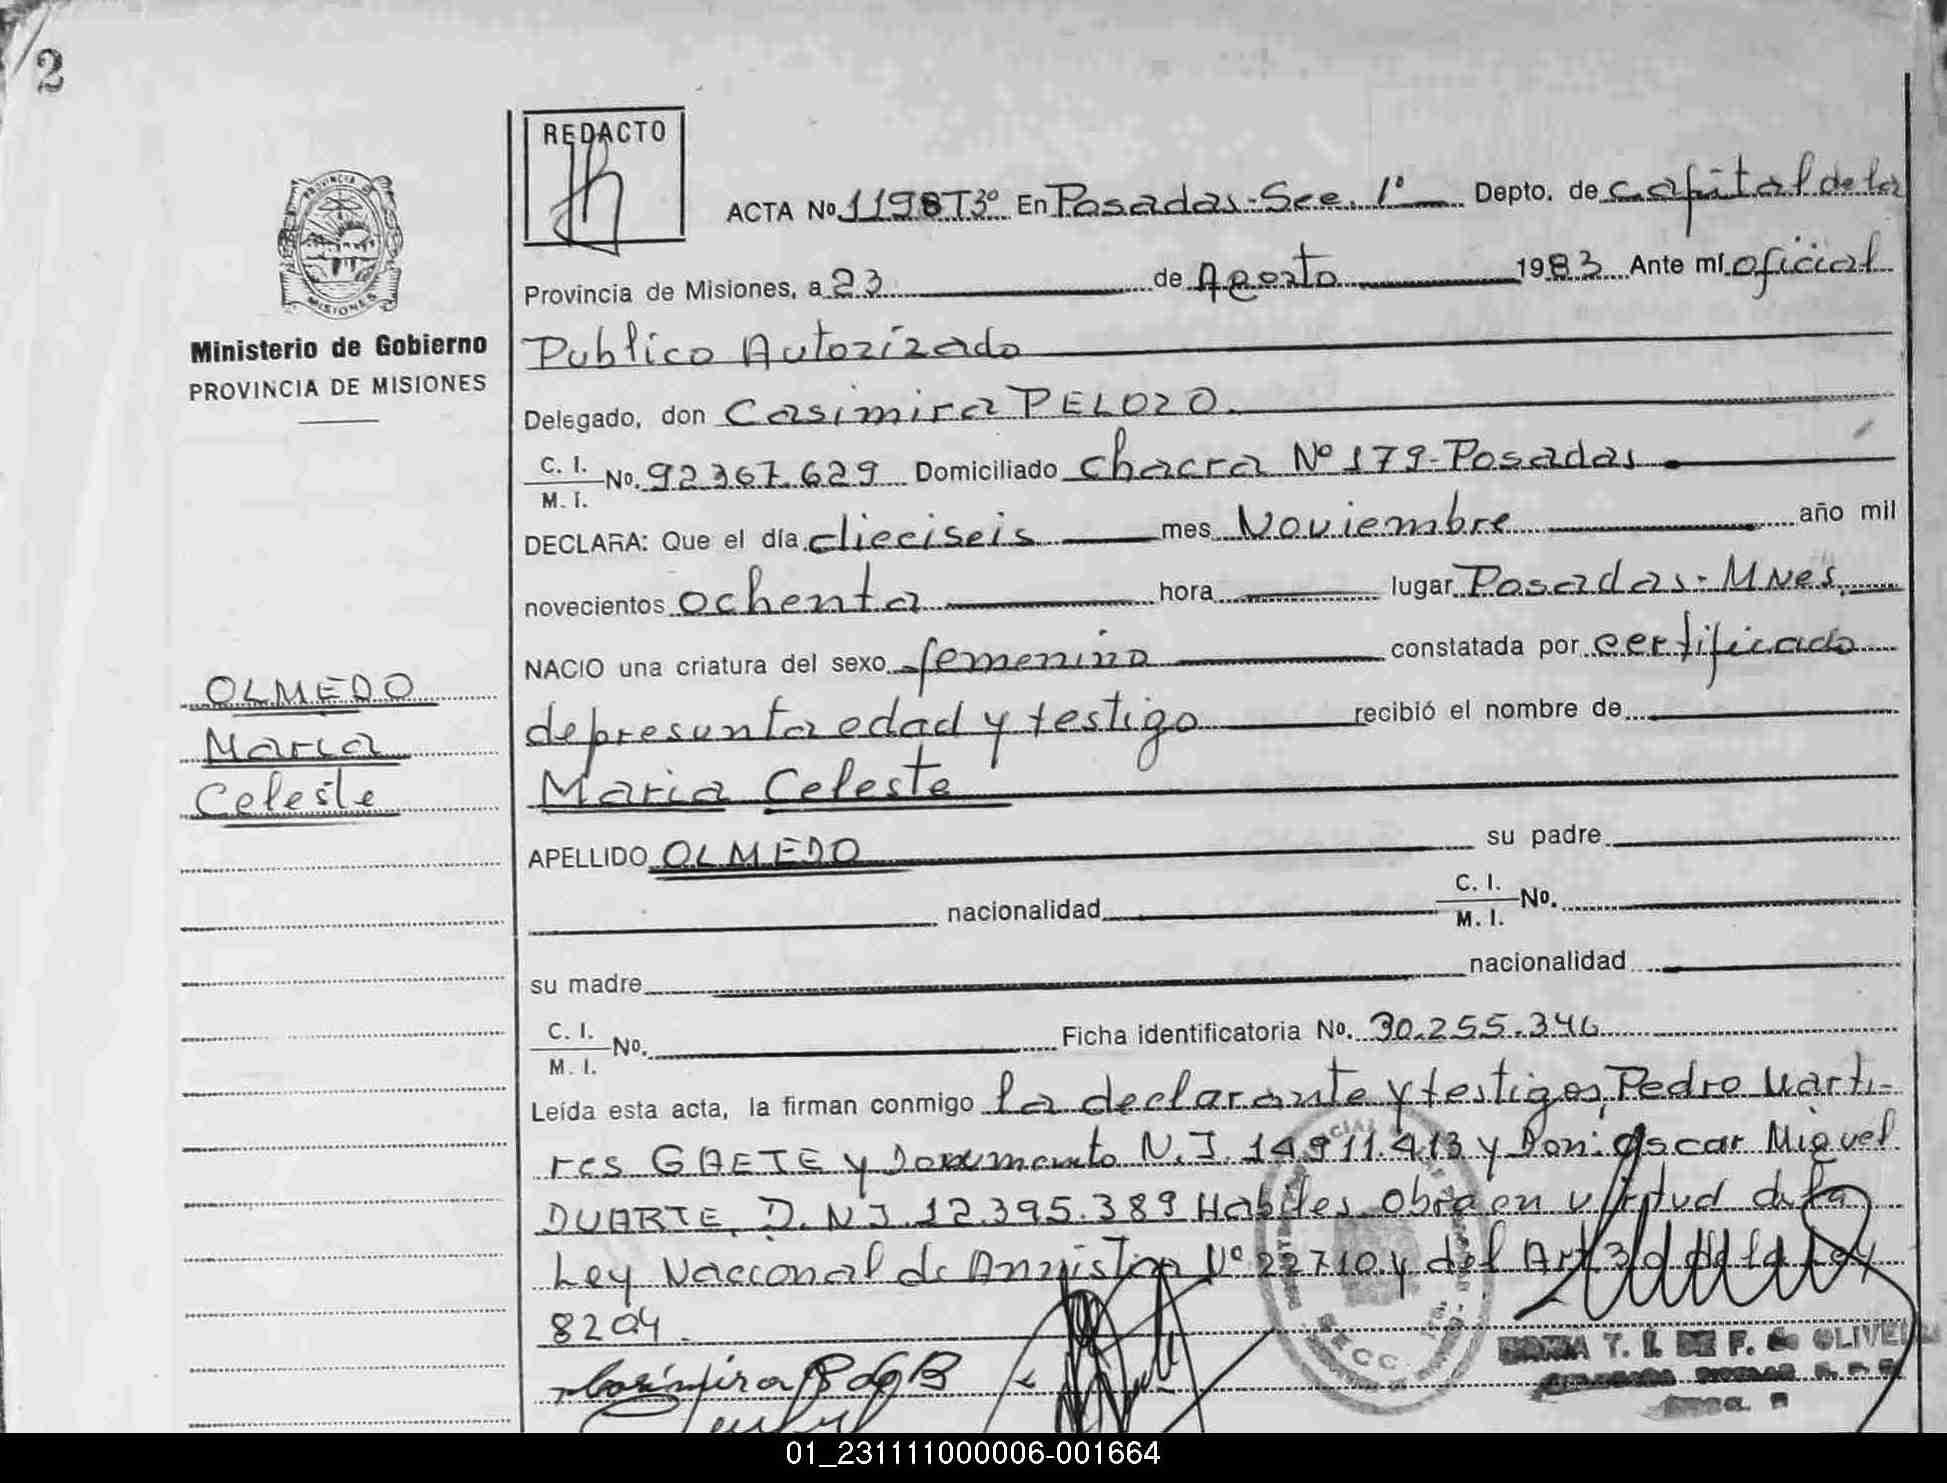 2
REDACTO
PROVINCIA
MISIONES
Ministerio de Gobierno
PROVINCIA DE MISIONES
OLMEDO
Maria
Celeste
ACTA No 1198T3º En Posadas-Sec. 1ª Depto. de capital de la
Provincia de Misiones, a 23 de Agosto 1983 Ante mí oficial
Publico Autorizado
Delegado, don Casimira PELOZO.
C. I. / M. I. No. 92.367.629 Domiciliado chacra Nº 179-Posadas
DECLARA: Que el día dieciseis mes Noviembre año mil
novecientos ochenta hora lugar Posadas-Mnes.
NACIO una criatura del sexo femenino constatada por certificado
de presunta edad y testigo recibió el nombre de
Maria Celeste
APELLIDO OLMEDO su padre
nacionalidad C. I. / M. I. No.
su madre nacionalidad
C. I. / M. I. No. Ficha identificatoria No. 30.255.346
Leída esta acta, la firman conmigo la declarante y testigos, Pedro Marti-
res GAETE y Documento N.I. 14.911.413 y Don: Oscar Miguel
DUARTE, D.N I. 12.395.389 Habiles Obra en virtud de la
Ley Nacional de Amnistia Nº 22710 y del Art 30 de la Ley
8204.
T. I. DE F. de OLIVEI
01_231111000006-001664